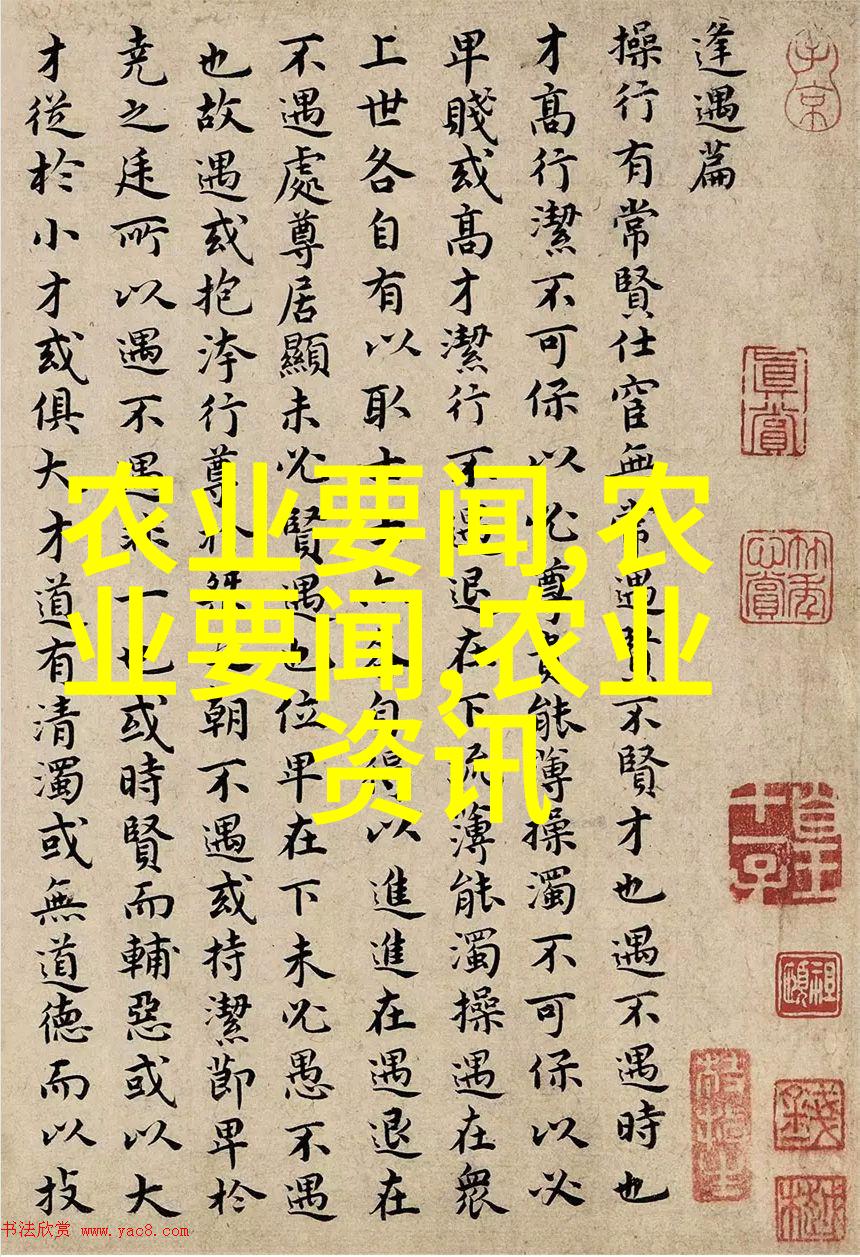 逢遇篇
操行有常賢仕宦無常遇賢不賢才也遇不遇時也
才高行潔不可保以必尊貴能薄操濁不可保以必
卑賤或高才潔行不遇退在下流薄能濁操遇在衆
上世各自有以取士士亦各自得以進進在遇退在
不遇處尊居顯未必賢遇也位卑在下未必愚不遇
也故遇或抱洿行尊於桀之朝不遇或持潔節卑於
堯之廷所以遇不遇非一也或時賢而輔惡或以大
才從於小才或俱大才道有清濁或無道德而以技
农业要闻,农
业要闻,农业
资讯
子京
真賞
书法欣赏 www.yac8.com